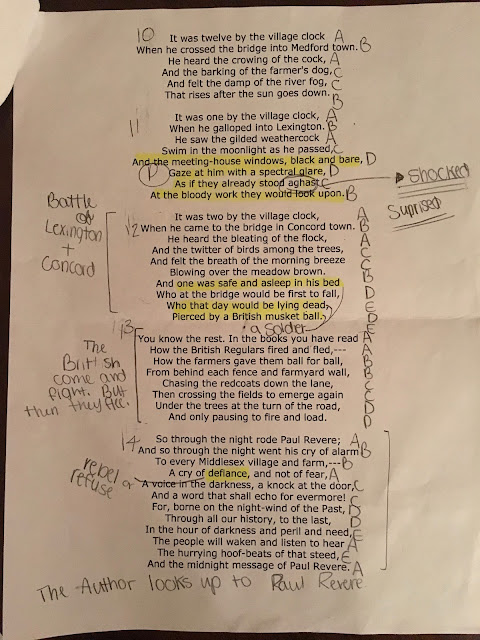 10 It was twelve by the village clock A
When he crossed the bridge into Medford town. B
He heard the crowing of the cock, A
And the barking of the farmer's dog, C
And felt the damp of the river fog, C
That rises after the sun goes down. B
11 It was one by the village clock, A
When he galloped into Lexington. B
He saw the gilded weathercock A
Swim in the moonlight as he passed, C
And the meeting-house windows, black and bare, D
P Gaze at him with a spectral glare, D
As if they already stood aghast C shocked
At the bloody work they would look upon. B Suprised
Battle
of
Lexington
+
Concord
It was two by the village clock, A
12 When he came to the bridge in Concord town. B
He heard the bleating of the flock, A
And the twitter of birds among the trees, C
And felt the breath of the morning breeze C
Blowing over the meadow brown. B
And one was safe and asleep in his bed D
Who at the bridge would be first to fall, E
Who that day would be lying dead, D
Pierced by a British musket ball. E
a Solder
13
The
British
come and
fight. But
then they flee.
You know the rest. In the books you have read A
How the British Regulars fired and fled,--- A
How the farmers gave them ball for ball, B
From behind each fence and farmyard wall, B
Chasing the redcoats down the lane, C
Then crossing the fields to emerge again C
Under the trees at the turn of the road, D
And only pausing to fire and load. D
14 So through the night rode Paul Revere; A
And so through the night went his cry of alarm B
To every Middlesex village and farm,--- B
A cry of defiance, and not of fear, A
rebel or
refuse
A voice in the darkness, a knock at the door, C
And a word that shall echo for evermore! C
For, borne on the night-wind of the Past, D
Through all our history, to the last, D
In the hour of darkness and peril and need, E
The people will waken and listen to hear A
The hurrying hoof-beats of that steed, E
And the midnight message of Paul Revere. A
The Author looks up to Paul Revere